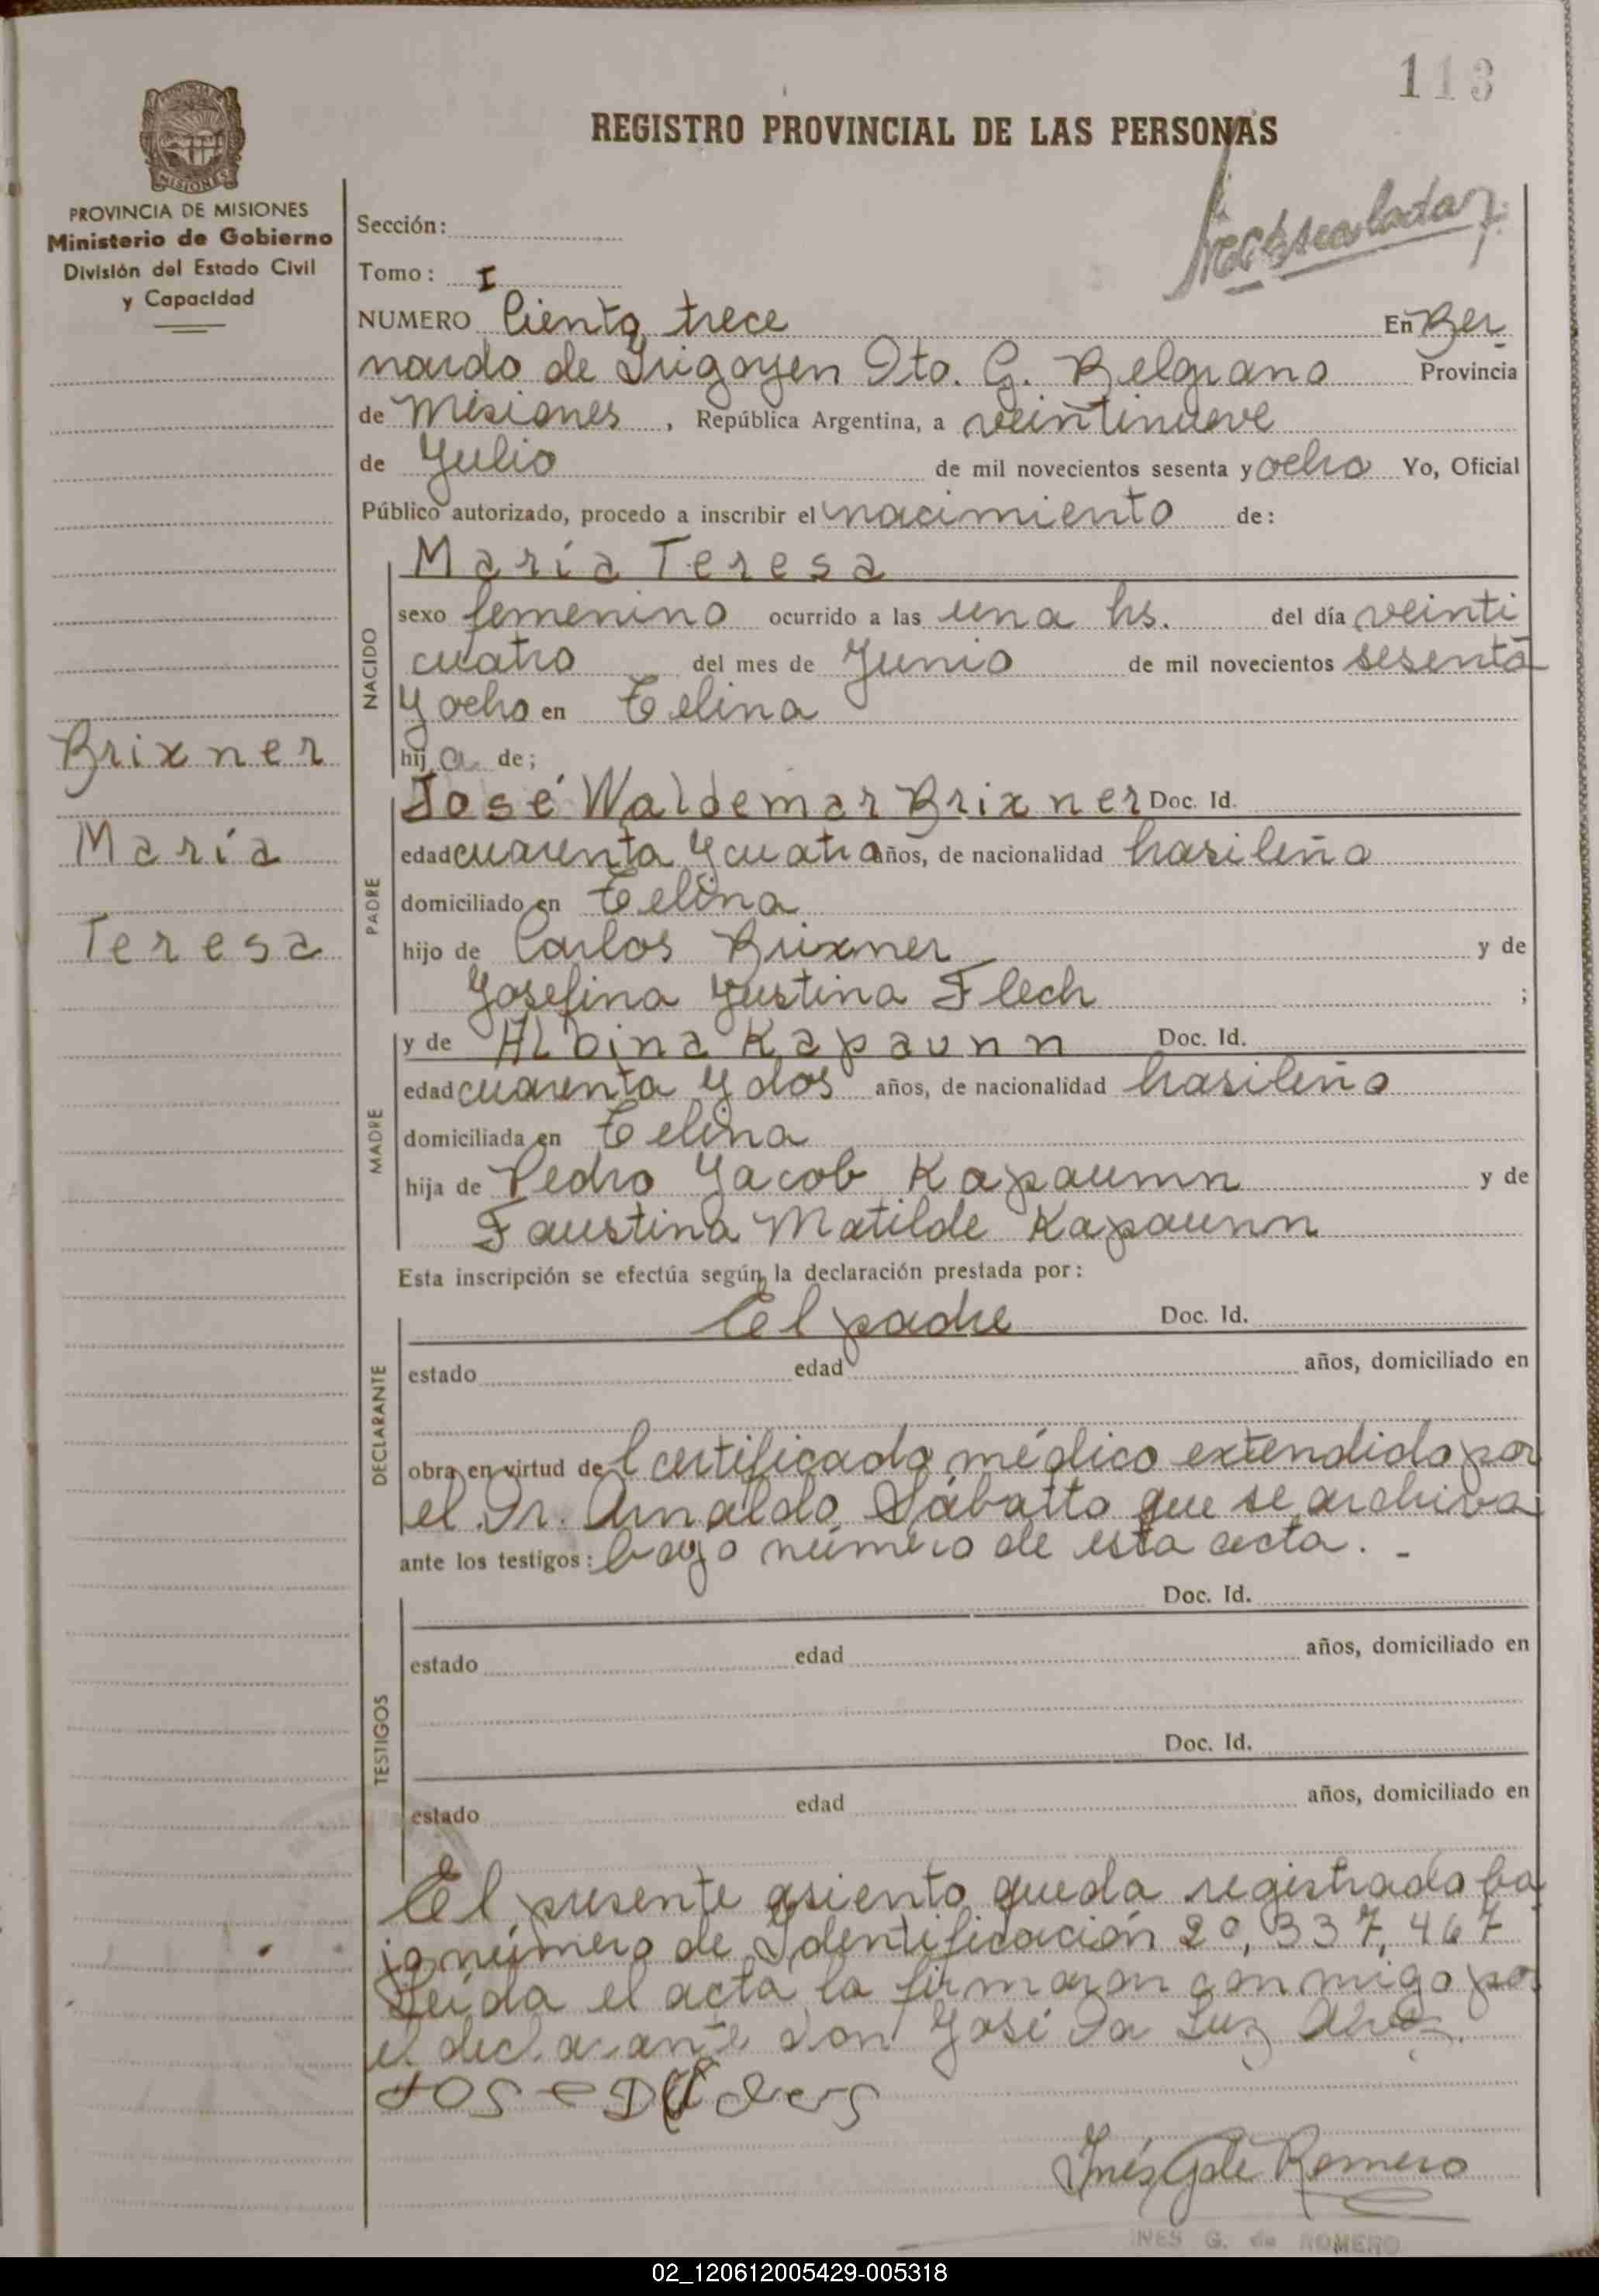 113
REGISTRO PROVINCIAL DE LAS PERSONAS
PROVINCIA DE MISIONES
Ministerio de Gobierno
División del Estado Civil
y Capacidad
Brixner
María
Teresa
Sección:
Tomo: I
NUMERO Ciento trece En Ber
nardo de Irigoyen Dto. G. Belgrano Provincia
de Misiones, República Argentina, a veintinueve
de Julio de mil novecientos sesenta y ocho Yo, Oficial
Público autorizado, procedo a inscribir el nacimiento de:
NACIDO
María Teresa
sexo femenino ocurrido a las una hs. del día veinti
cuatro del mes de Junio de mil novecientos sesenta
y ocho en Celina
hija de;
PADRE
José Waldemar Brixner Doc. Id.
edad cuarenta y cuatro años, de nacionalidad brasileña
domiciliado en Celina
hijo de Carlos Brixner y de
Josefina Justina Flech ;
MADRE
y de Albina Kapaunn Doc. Id.
edad cuarenta y dos años, de nacionalidad brasileña
domiciliada en Celina
hija de Pedro Jacob Kapaumn y de
Faustina Matilde Kapaunn
Esta inscripción se efectúa según la declaración prestada por:
DECLARANTE
El padre Doc. Id.
estado edad años, domiciliado en
obra en virtud del certificado médico extendido por
el Dr. Arnaldo Sábatto que se archiva
ante los testigos: bajo número de esta acta. -
TESTIGOS
Doc. Id.
estado edad años, domiciliado en
Doc. Id.
estado edad años, domiciliado en
El presente asiento queda registrado ba
jo número de Identificación 20,337,467
Leída el acta la firmaron conmigo por
el declarante don José Da Luz
Inés G de Romero
INES G. de ROMERO
02_120612005429-005318